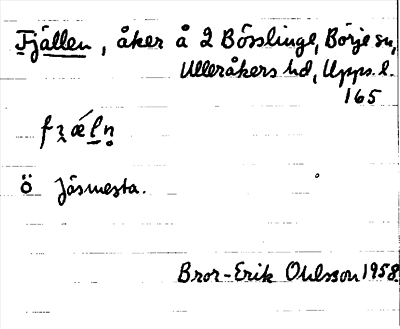 Fjällen, åker å 2 Bösslinge, Börje sn,
Ulleråkers hd, Upps. l.
165
fʒæ´ln̥
Ö Jäsmesta.
Bror-Erik Ohlsson 1958.